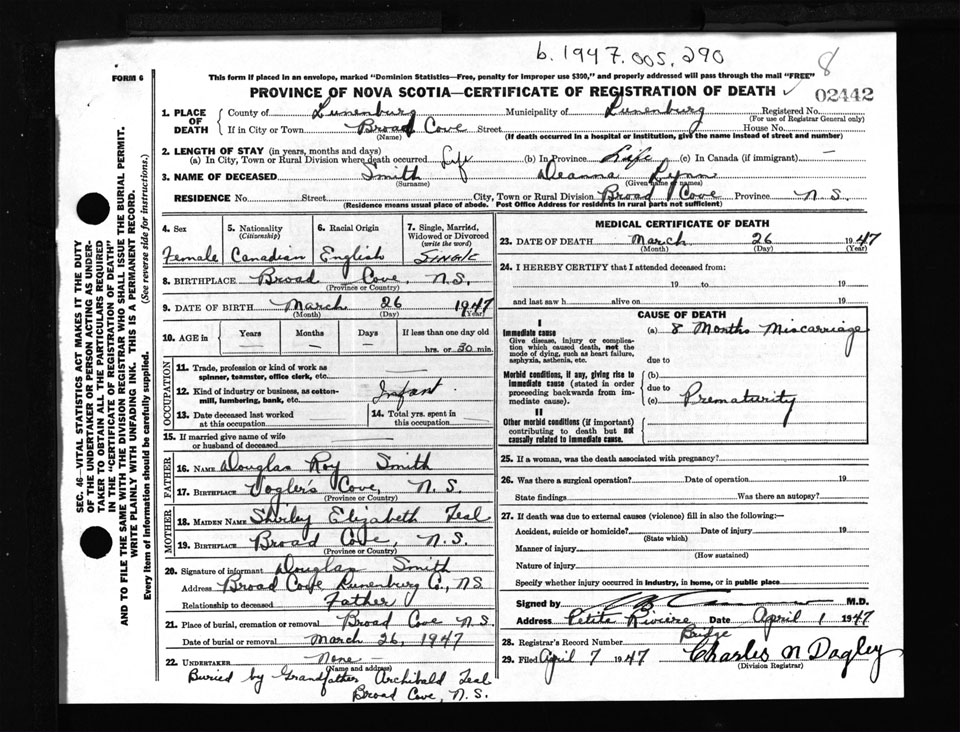 b. 1947.005.290
8
FORM 6
This form if placed in an envelope, marked "Dominion Statistics—Free, penalty for improper use $300," and properly addressed will pass through the mail "FREE"
PROVINCE OF NOVA SCOTIA—CERTIFICATE OF REGISTRATION OF DEATH ✓ 02442
1. PLACE OF DEATH County of Lunenburg Municipality of Lunenburg Registered No.
(For use of Registrar General only)
If in City or Town Broad Cove Street House No.
(Name) (If death occurred in a hospital or institution, give the name instead of street and number)
2. LENGTH OF STAY (in years, months and days)
(a) In City, Town or Rural Division where death occurred Life (b) In Province Life (c) In Canada (if immigrant) —
3. NAME OF DECEASED Smith Deanna Lynn
(Surname) (Given name or names)
RESIDENCE No. Street City, Town or Rural Division Broad Cove Province N.S.
(Residence means usual place of abode. Post Office Address for residents in rural parts not sufficient)
4. Sex 5. Nationality (Citizenship) 6. Racial Origin 7. Single, Married, Widowed or Divorced (write the word)
Female Canadian English Single
8. BIRTHPLACE Broad Cove, N.S.
(Province or Country)
9. DATE OF BIRTH March 26 1947
(Month) (Day) (Year)
10. AGE in Years Months Days If less than one day old
— — — hrs. or 30 min.
OCCUPATION
11. Trade, profession or kind of work as spinner, teamster, office clerk, etc.
12. Kind of industry or business, as cotton-mill, lumbering, bank, etc. Infant
13. Date deceased last worked at this occupation 14. Total yrs. spent in this occupation
15. If married give name of wife or husband of deceased
FATHER
16. NAME Douglas Roy Smith
17. BIRTHPLACE Vogler's Cove, N.S.
(Province or Country)
MOTHER
18. MAIDEN NAME Shirley Elizabeth Teal
19. BIRTHPLACE Broad Cove, N.S.
(Province or Country)
20. Signature of informant Douglas Smith
Address Broad Cove Lunenburg Co., N.S.
Relationship to deceased Father
21. Place of burial, cremation or removal Broad Cove N.S.
Date of burial or removal March 26, 1947
22. UNDERTAKER None —
(Name and address)
Buried by Grandfather Archibald Teal
Broad Cove, N.S.
MEDICAL CERTIFICATE OF DEATH
23. DATE OF DEATH March 26 1947
(Month) (Day) (Year)
24. I HEREBY CERTIFY that I attended deceased from:
19 to 19
and last saw h alive on 19
CAUSE OF DEATH
I
Immediate cause (a) 8 Months Miscarriage
Give disease, injury or complication which caused death, not the mode of dying, such as heart failure, asphyxia, asthenia, etc.
due to
Morbid conditions, if any, giving rise to immediate cause (stated in order proceeding backwards from immediate cause).
(b)
due to
(c) Prematurity
II
Other morbid conditions (if important) contributing to death but not causally related to immediate cause.
25. If a woman, was the death associated with pregnancy?
26. Was there a surgical operation? Date of operation 19
State findings Was there an autopsy?
27. If death was due to external causes (violence) fill in also the following:—
Accident, suicide or homicide? Date of injury 19
(State which)
Manner of injury
(How sustained)
Nature of injury
Specify whether injury occurred in industry, in home, or in public place
Signed by M.D.
Address Petite Riviere Date April 1 1947
Bridge
28. Registrar's Record Number
29. Filed April 7 1947 Charles N Dagley
(Division Registrar)
SEC. 46—VITAL STATISTICS ACT MAKES IT THE DUTY
OF THE UNDERTAKER OR PERSON ACTING AS UNDER-
TAKER TO OBTAIN ALL THE PARTICULARS REQUIRED
IN THE "CERTIFICATE OF REGISTRATION OF DEATH"
AND TO FILE THE SAME WITH THE DIVISION REGISTRAR WHO SHALL ISSUE THE BURIAL PERMIT.
WRITE PLAINLY WITH UNFADING INK. THIS IS A PERMANENT RECORD.
Every item of information should be carefully supplied. (See reverse side for instructions.)